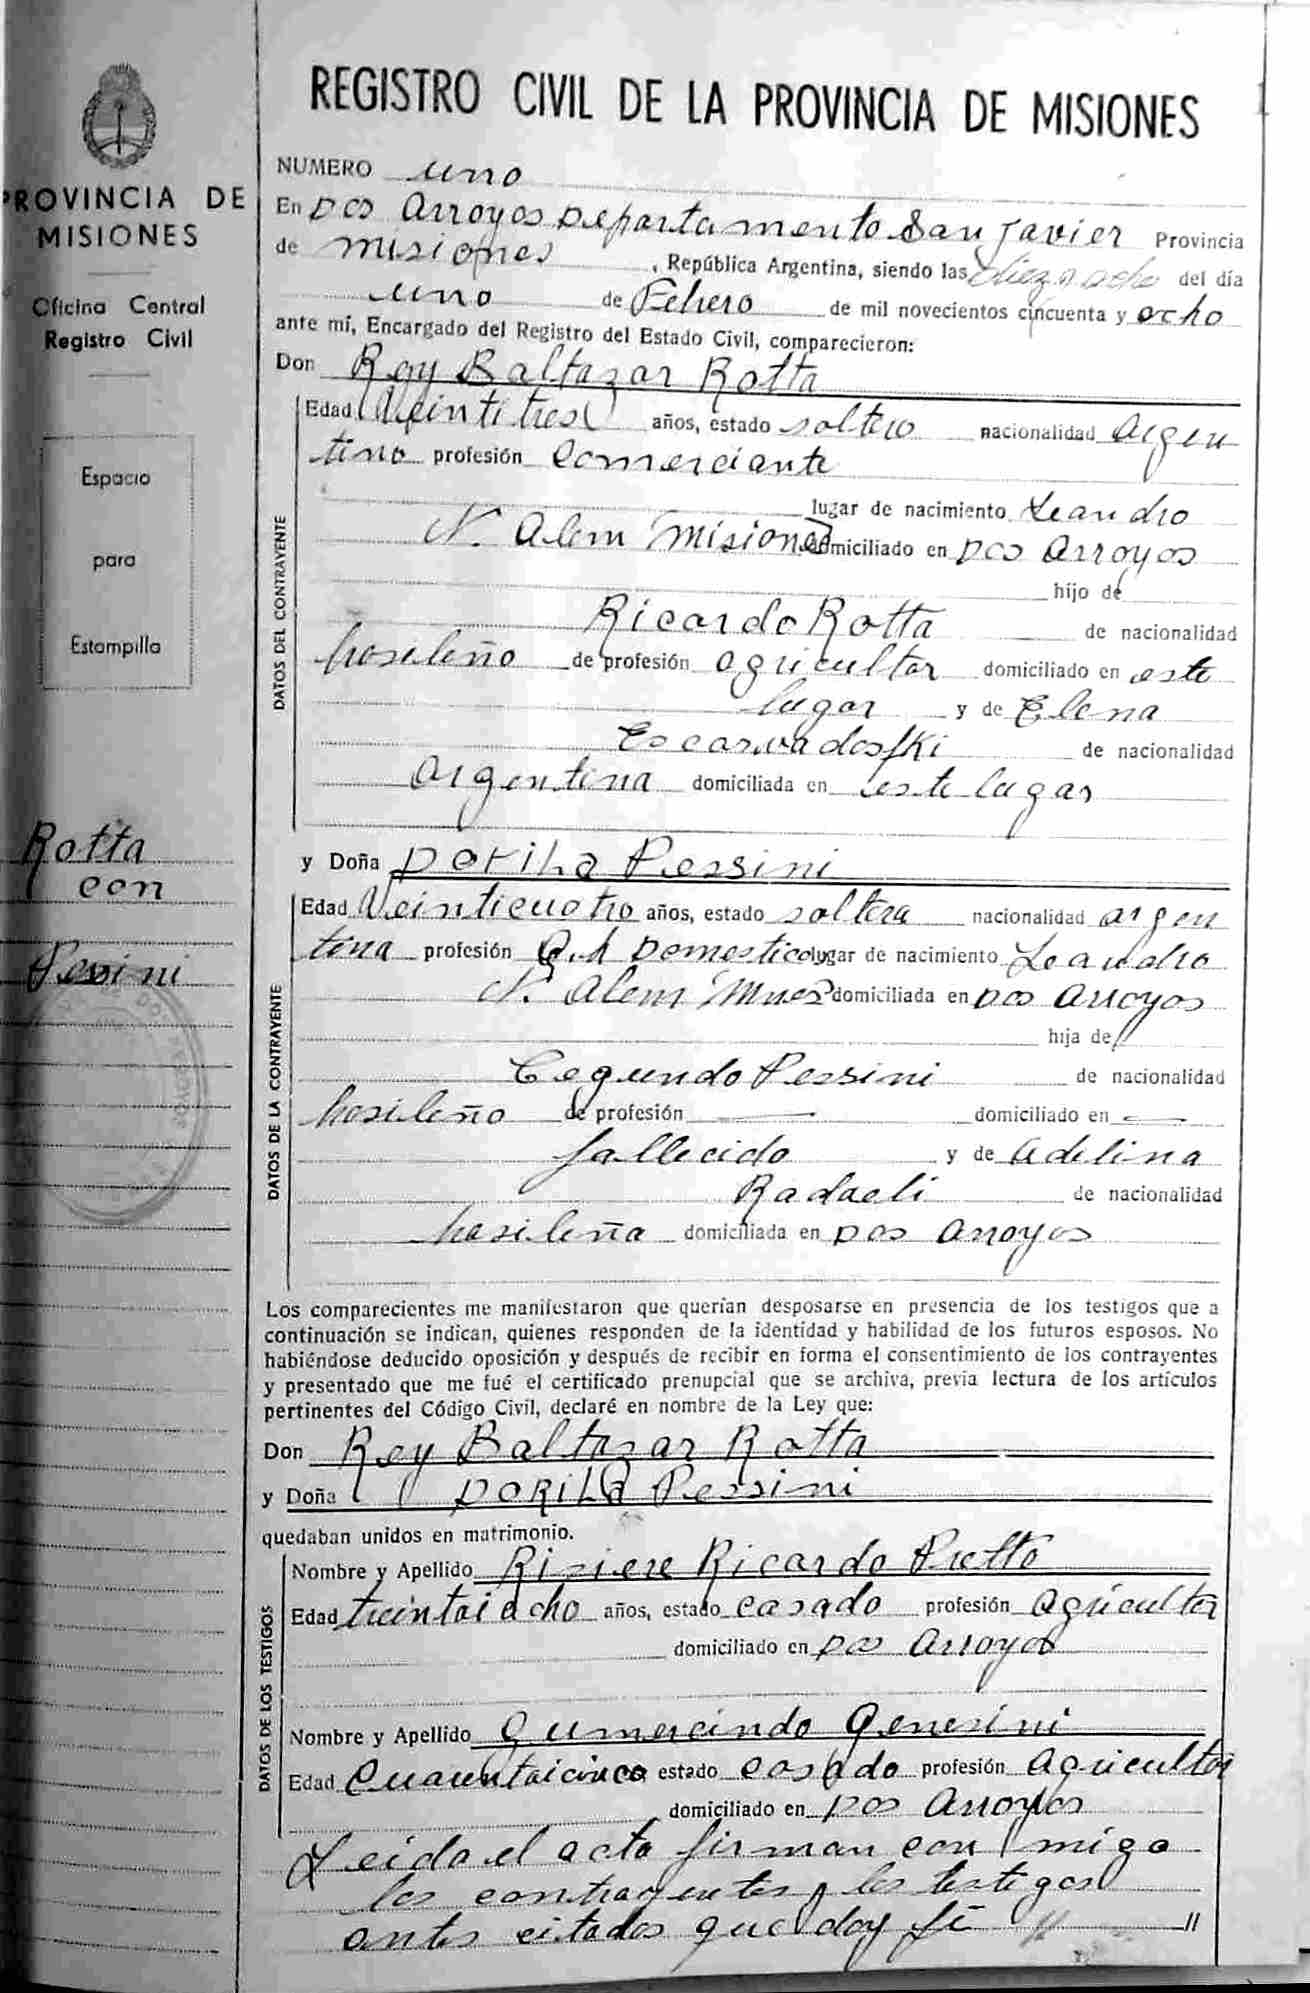 PROVINCIA DE
MISIONES
Oficina Central
Registro Civil
Espacio
para
Estampilla
Rotta
con
Pessini
REGISTRO CIVIL DE LA PROVINCIA DE MISIONES
NUMERO uno
En Dos Arroyos Departamento San Javier Provincia
de misiones, República Argentina, siendo las diez y ocho del día
uno de Febrero de mil novecientos cincuenta y ocho
ante mí, Encargado del Registro del Estado Civil, comparecieron:
Don Rey Baltazar Rotta
DATOS DEL CONTRAYENTE
Edad Veintitres años, estado soltero nacionalidad argen
tino profesión Comerciante
lugar de nacimiento Leandro
N. Alem Misiones domiciliado en Dos Arroyos
hijo de
Ricardo Rotta de nacionalidad
brasileño de profesión agricultor domiciliado en este
lugar y de Elena
Escarvadosfki de nacionalidad
argentina domiciliada en este lugar
y Doña DORILA Pessini
DATOS DE LA CONTRAYENTE
Edad Veinticuatro años, estado soltera nacionalidad argen
tina profesión Q.H Domestico lugar de nacimiento Leandro
N. Alem Mnes domiciliada en Dos Arroyos
hija de
Cegundo Pessini de nacionalidad
brasileño de profesión — domiciliado en —
fallecido y de Adelina
Radaeli de nacionalidad
brasileña domiciliada en Dos Arroyos
Los comparecientes me manifestaron que querían desposarse en presencia de los testigos que a
continuación se indican, quienes responden de la identidad y habilidad de los futuros esposos. No
habiéndose deducido oposición y después de recibir en forma el consentimiento de los contrayentes
y presentado que me fué el certificado prenupcial que se archiva, previa lectura de los artículos
pertinentes del Código Civil, declaré en nombre de la Ley que:
Don Rey Baltazar Rotta
y Doña DORILA Pessini
quedaban unidos en matrimonio.
DATOS DE LOS TESTIGOS
Nombre y Apellido Risiere Ricardo Pretto
Edad treintaiocho años, estado casado profesión agricultor
domiciliado en Dos Arroyos
Nombre y Apellido Gumercindo Genesini
Edad Cuarentaicinco estado casado profesión agricultor
domiciliado en Dos Arroyos
Leida el acta firman con migo
los contrayentes y los testigos
antes citados que doy fé